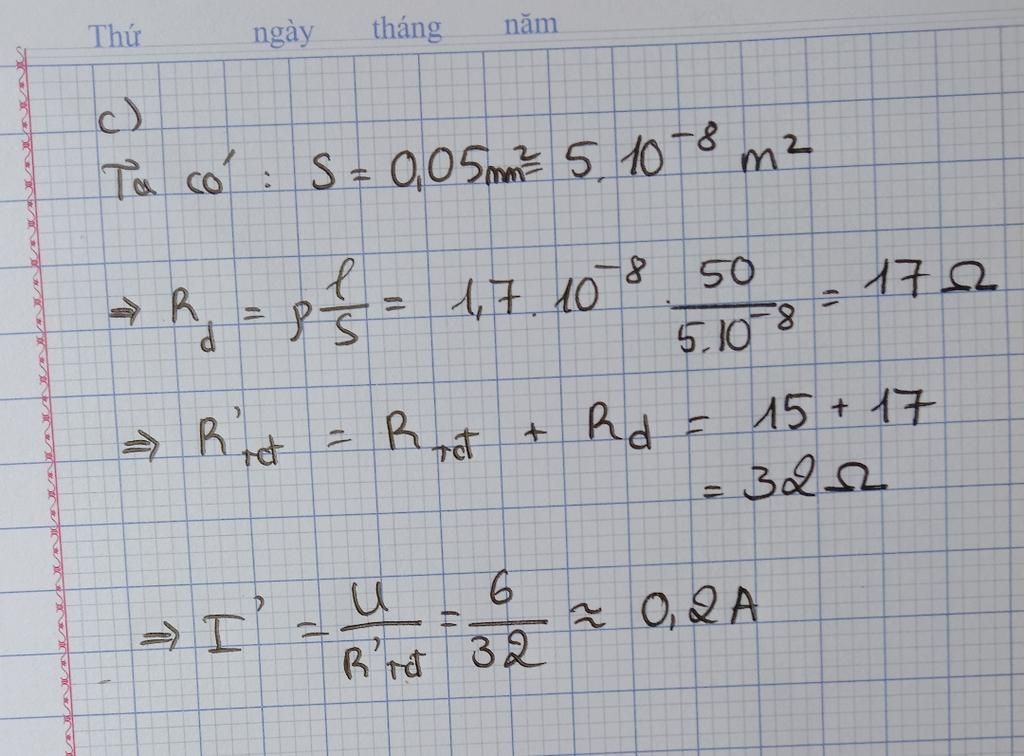 Thứ ngày tháng năm
c)
Ta có : S = 0,05mm² = 5.10⁻⁸ m²
⇒ R_d = ρ l/S = 1,7.10⁻⁸ . 50/5.10⁻⁸ = 17 Ω
⇒ R'_tđ = R_tđ + R_d = 15 + 17
= 32 Ω
⇒ I' = U/R'_tđ = 6/32 ≈ 0,2A